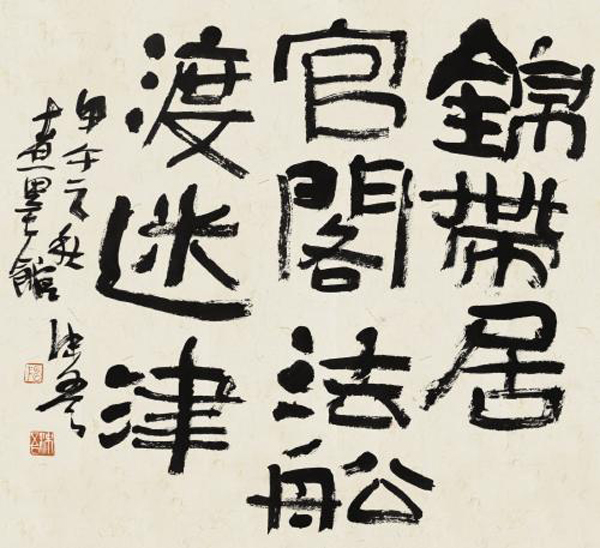 錦帶居
官閣法舩
渡迷津
甲午之秋
煮墨館